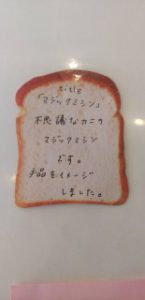 「マジックミシン」
不思議なカニの
マジックミシン
です。
手品をイメージ
しました。